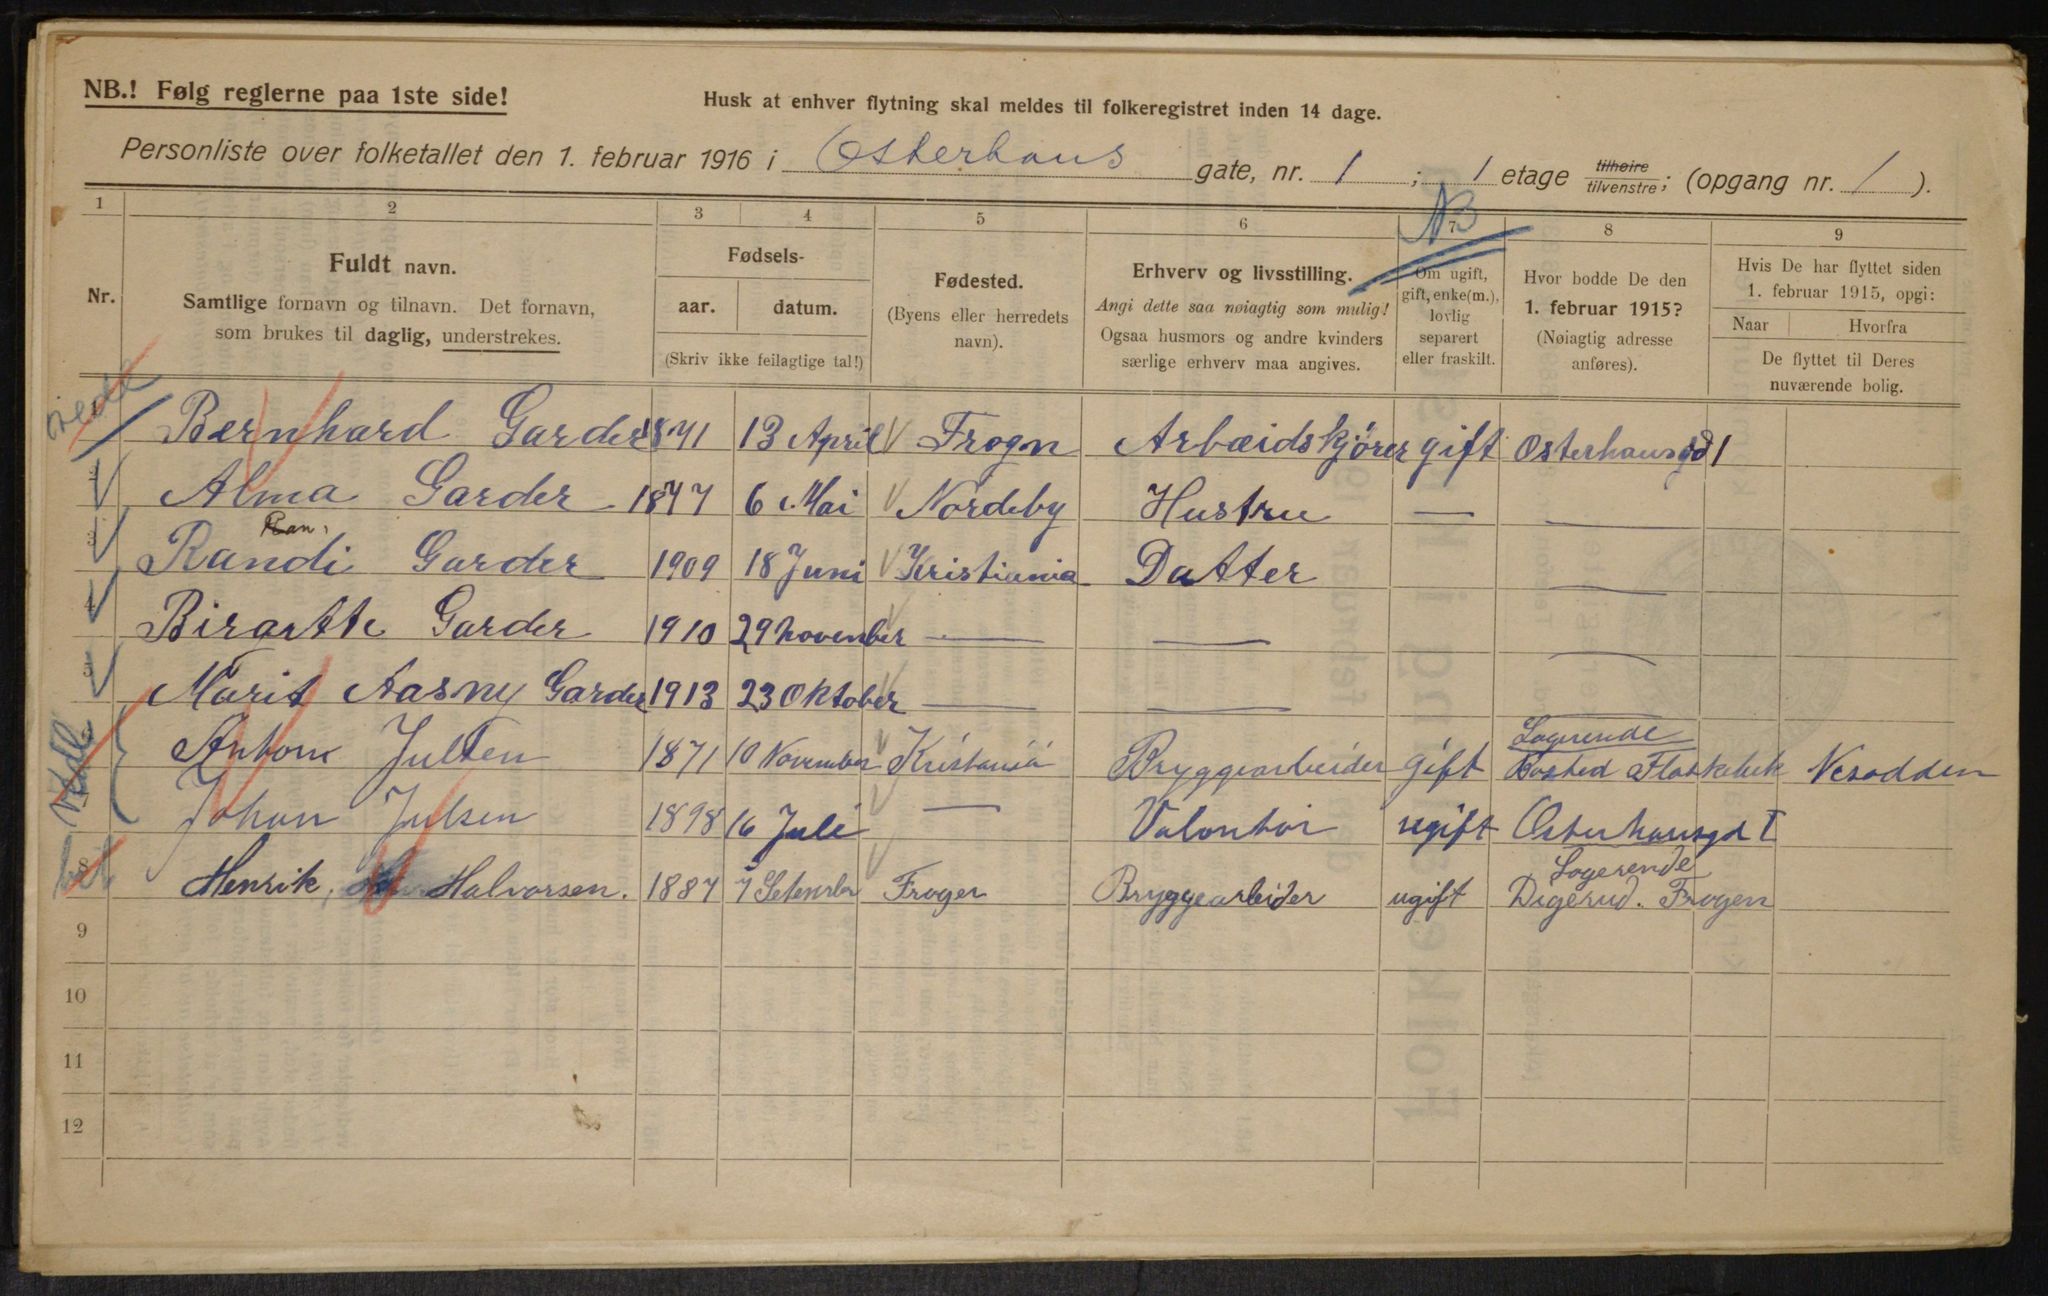 NB.! Følg reglerne paa 1ste side!
Husk at enhver flytning skal meldes til folkeregistret inden 14 dage.
Personliste over folketallet den 1. februar 1916 i Osterhaus gate, nr. 1 ; 1 etage tilhøire tilvenstre; (opgang nr. 1 ).
NB
1 2 3 4 5 6 7 8 9
Nr.
Fuldt navn.
Samtlige fornavn og tilnavn. Det fornavn,
som brukes til daglig, understrekes.
Fødsels-
aar. datum.
(Skriv ikke feilagtige tal!)
Fødested.
(Byens eller herredets
navn).
Erhverv og livsstilling.
Angi dette saa nøiagtig som mulig!
Ogsaa husmors og andre kvinders
særlige erhverv maa angives.
Om ugift,
gift, enke(m.),
lovlig
separert
eller fraskilt.
Hvor bodde De den
1. februar 1915?
(Nøiagtig adresse
anføres).
Hvis De har flyttet siden
1. februar 1915, opgi:
Naar Hvorfra
De flyttet til Deres
nuværende bolig.
1 Bernhard Garder 1871 13 April Frogn Arbæidskjörer gift Osterhausgd 1
2 Alma Garder 1877 6 Mai Nordeby Hustru — —
Ran
3 Randi Garder 1909 18 Juni Kristiania Datter —
4 Biragtte Garder 1910 29 november — — —
5 Marit Aasny Garder 1913 23 Oktober — —
Logerende
Anton Julsen 1871 10 November Kristania Bryggearbeider gift Bosted Flaskebek Nesodden
Johan Julsen 1898 16 Juli — Volontør ugift Osterhausgd I
Logerende
8 Henrik Halvorsen. 1887 7 Setember Frogen Bryggearbeider ugift Digerud. Frogen
9
10
11
12